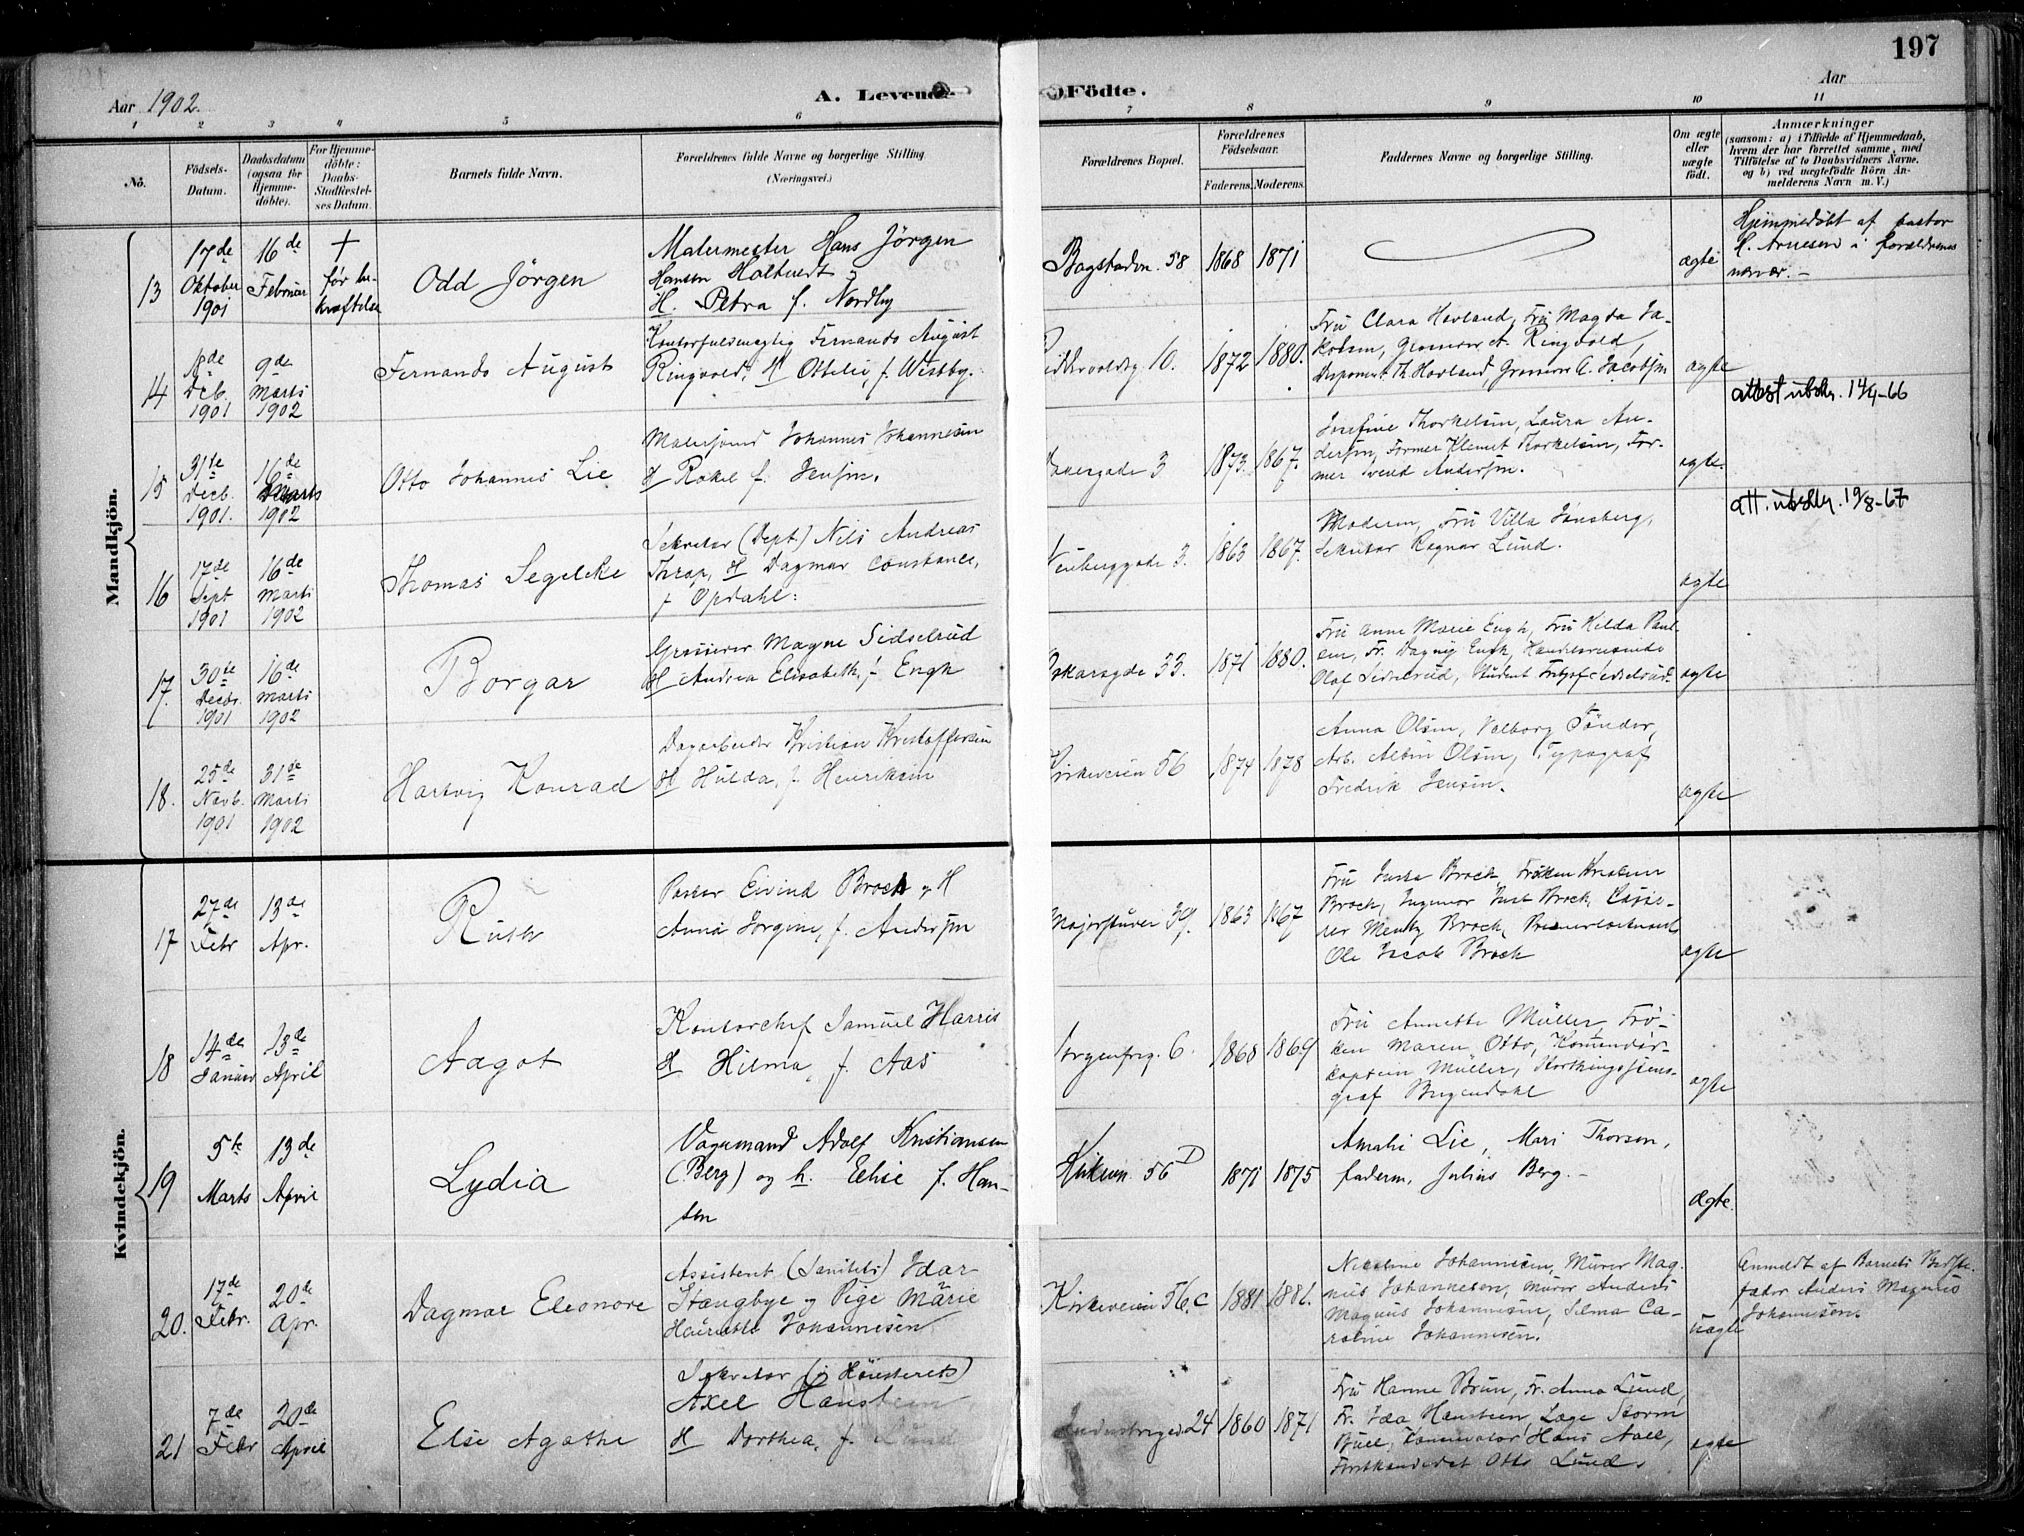 197
Aar 1902.
A. Levende
Födte.
Aar
1 2 3 4 5 6 7 8 9 10 11
No.
Födsels-
Datum.
Daabsdatum
(ogsaa for
Hjemme-
döbte).
For Hjemme-
döbte:
Daabs-
Stadfæstel-
ses Datum.
Barnets fulde Navn.
Forældrenes fulde Navne og borgerlige Stilling
(Næringsvei.)
Forældrenes Bopæl.
Forældrenes
Födselsaar.
Faderens. Moderens.
Faddernes Navne og borgerlige Stilling.
Om ægte
eller
uægte
födt.
Anmærkninger
(saasom: a) i Tilfælde af Hjemmedaab,
hvem der har forrettet samme, med
Tilföielse af to Daabsvidners Navne,
og b) ved uægtefödte Börn An-
melderens Navn m. V.)
Mandkjön.
13
17de
Oktober
1901
16de
Februar
+
før be-
kræftelse
Odd Jörgen
Malermester Hans Jörgen
Hansen Holtvedt
H. Petra f. Nordby
Bogstadvn. 58
1868 1871
ægte
Hjemmedöbt af pastor
H. Arnesen i forældrenes
nærvær. -
14
18de
Deb.
1901
9de
Marts
1902
Fernando August
Kontorfuldmægtig Fernando August
Ringvold, H Ottilie, f. Westby.
10.
1872 1880.
Fru Clara Hovland, Fru Magda Ja-
kobsen, Grosserer A. Ringvold,
Disponent Th. Hovland, Grosserer A. Jacobsen
ægte
attest utskr. 14/4-66
15
31te
Decb.
1901.
16de
Marts
1902
Otto Johannes Lie
Malersvend Johannes Johannesen
H Rakel f. Jensen.
3
1873. 1867.
Josefine Thorkelsen, Laura An-
dersen, Former Klemet Thorkelsen, For-
mer Svend Andersen.
ægte.
att. utskr. 19/8-67
16
17de
Sept
1901
16de
Marts
1902
Thomas Segelcke
Sekretær (Dept) Nils Andreas
Thrap, H Dagmar Constance,
f Opdahl.
Neuberggade 3.
1863 1867.
Moderen, Fru Villa Jönsberg,
Sekretær Ragnar Lund.
ægte
17.
30te
Decbr.
1901
16de
Marts
1902
Borgar
Grosserer Magne Sidselrud
H Andrea Elisabeth, f. Engh
Oskarsgde 53.
1871 1880.
Fru Anne Marie Engh, Fru Hilda Paul-
sen, Fr. Dagny Engh, Handelsreisende
Olaf Sidselrud, Student Fritjof Sidselrud.
ægte
18.
25de
Novb.
1901
31te
Marts
1902
Hartvig Konrad
Dagarbeider Kristian Kristoffersen
H Hulda, f Henriksen
Kirkeveien 56
1874 1878
Anna Olsen, Valborg Tönder,
Arb. Albin Olsen, Typograf
Fredrik Jensen.
ægte
Kvindekjön.
17
27de
Febr
13de
Apr.
Ruth
Pastor Eivind Broch og H
Anna Jörgine, f. Andersen
Majorstuvei 39.
1863 1867
Fru Justa Broch, Fröken Kristine
Broch, Ingeniør Just Broch, Kasse-
rer Mentz Broch, Premierløitnant
Ole Jacob Broch
ægte
18
14de
Januar
13de
April
Aagot
Kontorchef Samuel Harris
H Hilma, f. Aas
Sorgenfrig. 6.
1868 1869
Fru Annette Müller, Frö-
ken Maren Otto, Komandör-
captein Müller, Storthingssteno-
graf
ægte
19
5te
Marts
13de
April
Lydia
Vognmand Adolf Kristiansen
(Berg) og h. Eelise f. Han-
sen
Kirkevn. 56D
1871 1875
Amalie Lie, Mari Thorsen,
faderen, Julius Berg. -
ægte.
20.
17de
Febr.
20de
Apr.
Dagmar Eleonore
Assistent (Sanitets) Idar
Stangbye og Pige Marie
Henriette Johannesen
Kirkeveien 56.c
1881 1881.
Nicoline Johannesen, Murer Mag-
nus Johannesen, Murer Anders
Magnus Johannesen, Selma Ca-
roline Johannesen.
uægte
Anmeldt af Barnets Bedste-
fader Anders Magnus
Johannesen.
21
7de
Febr
20de
April
Else Agathe
Sekretær (i Höiesteret)
Axel Hansteen
H Dorthea, f. Lund
Industriged 24
1860 1871
Fru Hanne Brun, Fr. Anna Lund,
Fr. Ida Hansteen, Lage Storm
Bull, Konservator Hans Aall,
Forstkandidat Otto Lund.
ægte